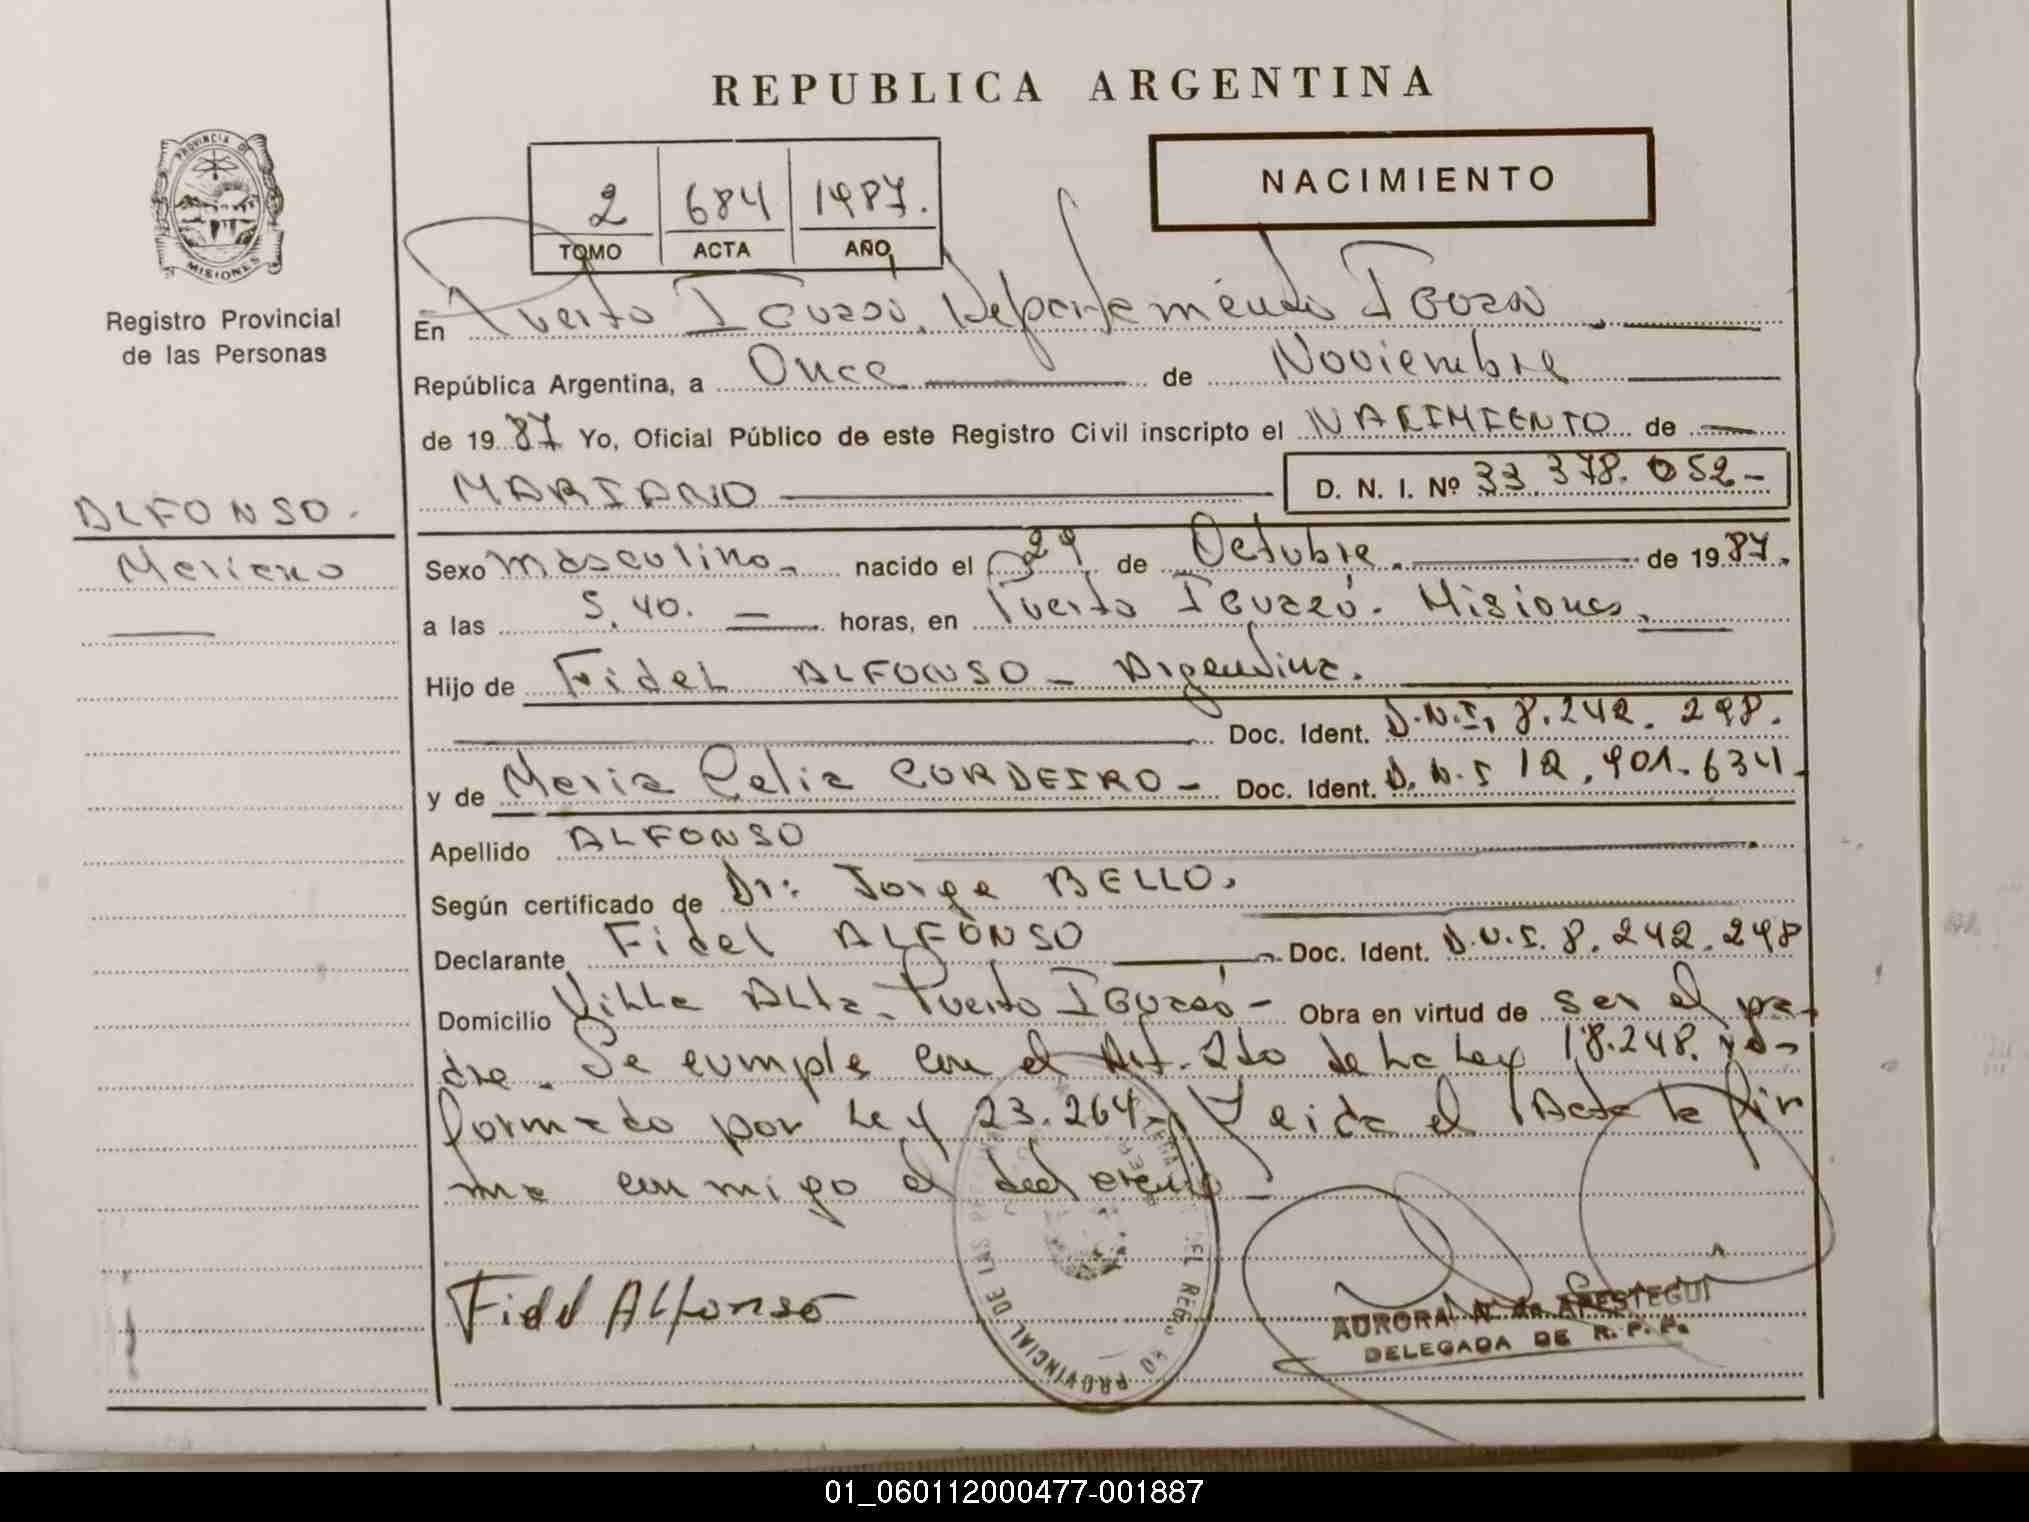 REPUBLICA ARGENTINA
PROVINCIA DE
MISIONES
Registro Provincial
de las Personas
2 684 1987.
TOMO ACTA AÑO
NACIMIENTO
En Puerto Iguazú. Departamento Iguazú
República Argentina, a Once de Noviembre
de 1987 Yo, Oficial Público de este Registro Civil inscripto el NACIMIENTO de
MARIANO D. N. I. Nº 33.378.052-
ALFONSO.
Mariano
Sexo masculino nacido el 29 de Octubre. de 1987.
a las 5.40. horas, en Puerto Iguazú. Misiones.
Hijo de Fidel ALFONSO - Argentina.
Doc. Ident. D.N.I. 8.242.298.
y de Maria Celia CORDEIRO - Doc. Ident. D.N.I 12.901.634-
Apellido ALFONSO
Según certificado de Dr: Jorge BELLO.
Declarante Fidel ALFONSO Doc. Ident. D.N.I. 8.242.298
Domicilio Villa Alta. Puerto Iguazú - Obra en virtud de ser el pa-
dre. Se cumple con el Art. 2do de la Ley 18.248.
formado por Ley 23.264- Leida el Acta la fir
ma conmigo el declarante
Fidel Alfonso
PROVINCIAL DE LAS
AURORA N. de ARESTEGUI
DELEGADA DE R. P. P.
01_060112000477-001887